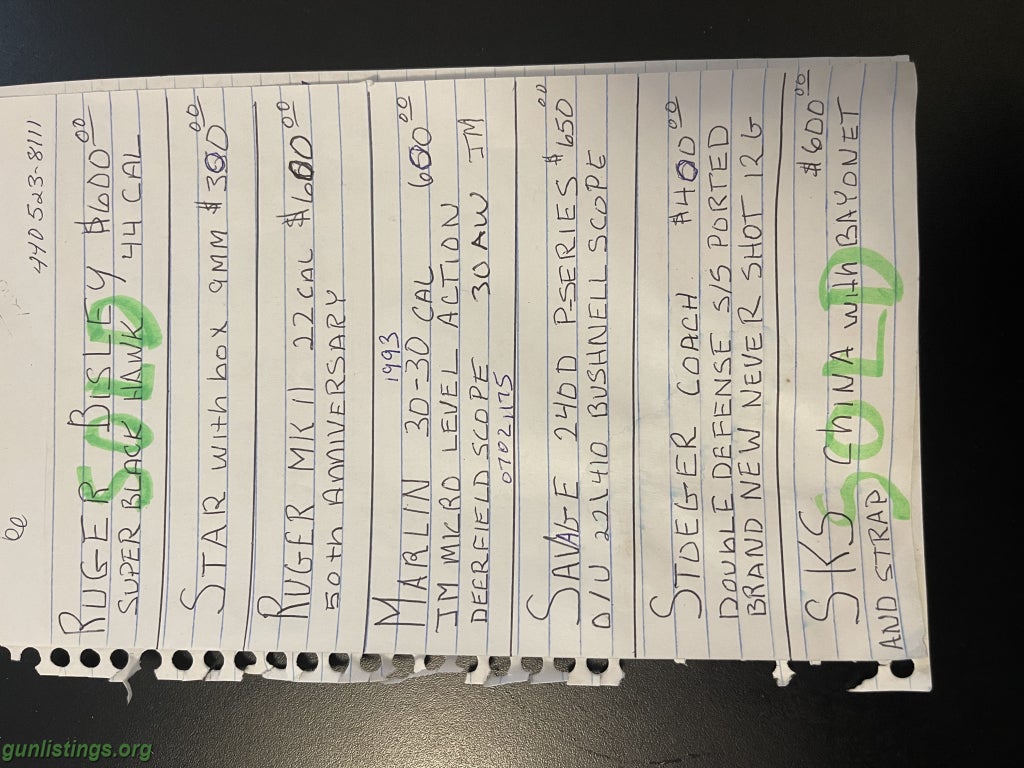 440 523-8111
RUGER BISLEY $600 00
SUPER BLACK HAWK 44 CAL
SOLD
STAR with box 9MM $300 00
RUGER MK II 22 CAL $600 00
50th ANNIVERSARY
1993
MARLIN 30-30 CAL 600 00
JM MICRO LEVEL ACTION
DEERFIELD SCOPE 30AW JM
07021175
SAVAGE 24OD P-SERIES $650 00
O/U 22\410 BUSHNELL SCOPE
STOEGER COACH $400 00
DOUBLE DEFENSE S/S PORTED
BRAND NEW NEVER SHOT 12G
$600 00
SKS ChINA with BAYONET
AND STRAP
SOLD
gunlistings.org